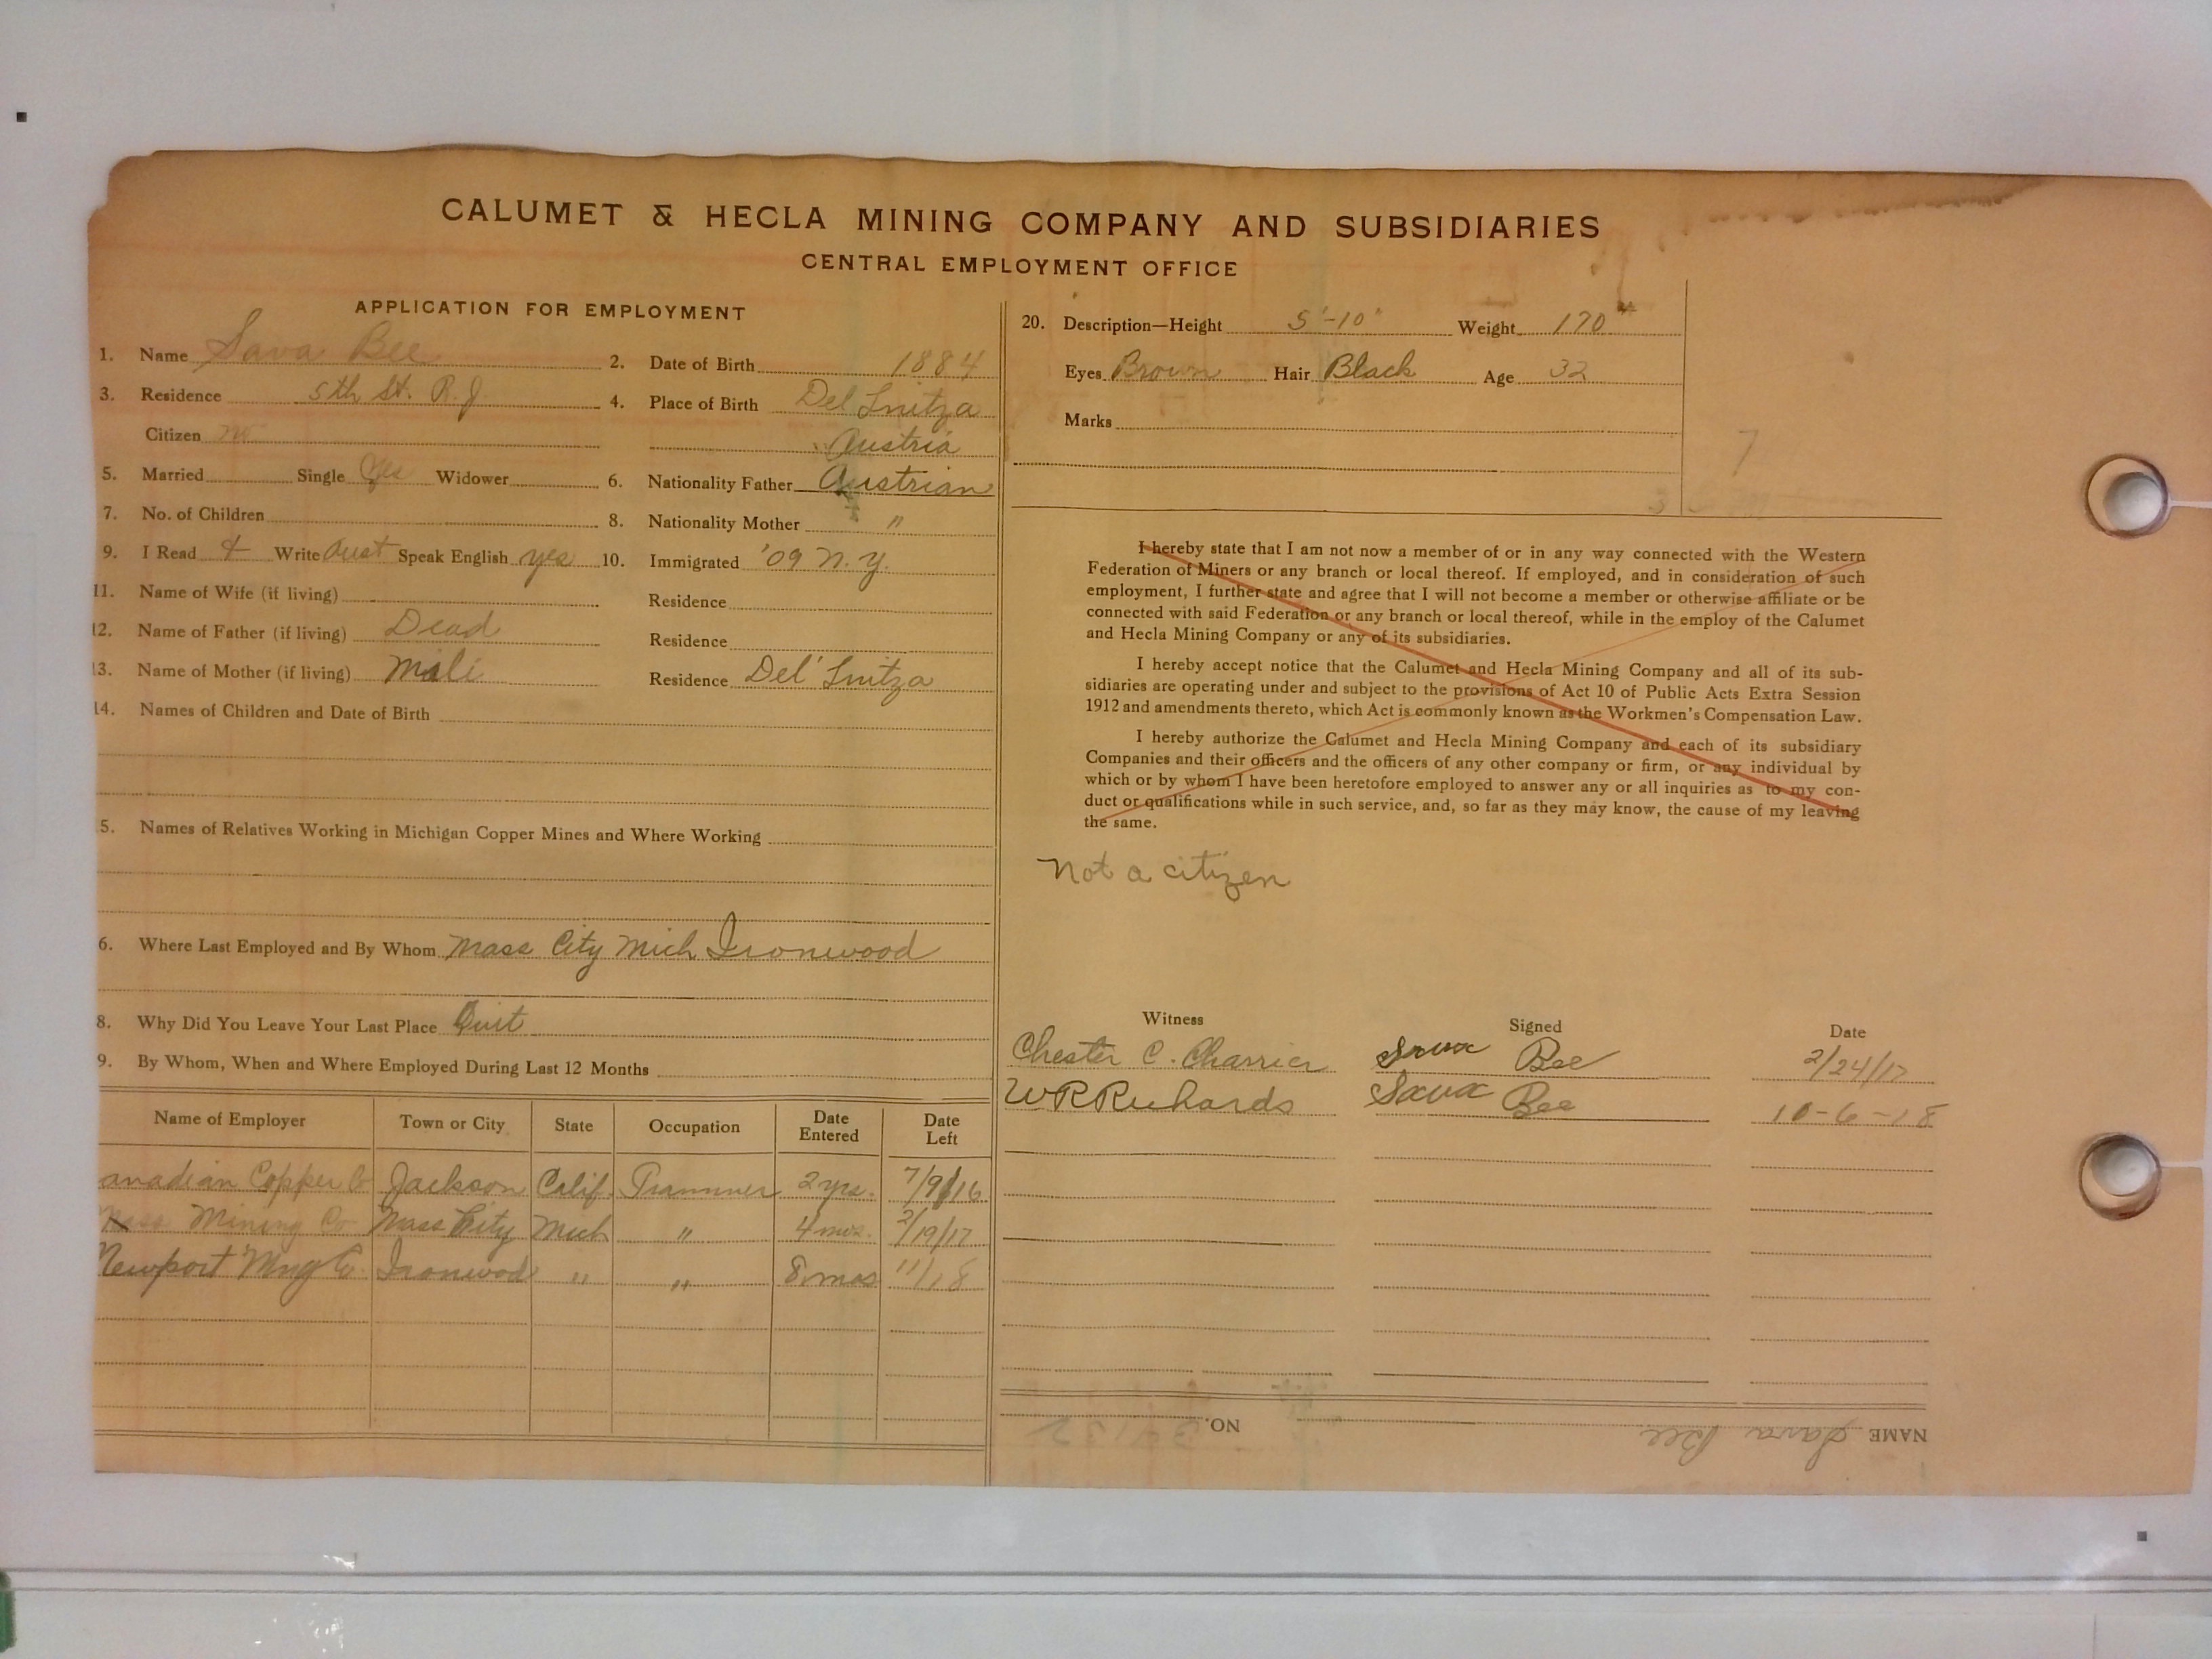 CALUMET & HECLA MINING COMPANY AND SUBSIDIARIES
CENTRAL EMPLOYMENT OFFICE
APPLICATION FOR EMPLOYMENT
1. Name Sava Bee 2. Date of Birth 1884
3. Residence 5th St. R.J. 4. Place of Birth Del Snitza
Citizen no Austria
5. Married Single Yes Widower 6. Nationality Father Austrian
7. No. of Children 8. Nationality Mother "
9. I Read & Write Aust Speak English yes 10. Immigrated '09 N.Y.
11. Name of Wife (if living) Residence
12. Name of Father (if living) Dead Residence
13. Name of Mother (if living) Mili Residence Del' Snitza
14. Names of Children and Date of Birth
5. Names of Relatives Working in Michigan Copper Mines and Where Working
6. Where Last Employed and By Whom Mass City Mich Ironwood
8. Why Did You Leave Your Last Place Quit
9. By Whom, When and Where Employed During Last 12 Months
Name of Employer Town or City State Occupation Date Entered Date Left
anadian Copper Co Jackson Calif. Trammer 2 yrs. 7/9/16
Mass Mining Co Mass City Mich " 4 mos. 2/19/17
Newport Mng Co. Ironwood " " 8 mos 11/18
20. Description—Height 5'-10" Weight 170#
Eyes Brown Hair Black Age 32
Marks
7
I hereby state that I am not now a member of or in any way connected with the Western
Federation of Miners or any branch or local thereof. If employed, and in consideration of such
employment, I further state and agree that I will not become a member or otherwise affiliate or be
connected with said Federation or any branch or local thereof, while in the employ of the Calumet
and Hecla Mining Company or any of its subsidiaries.
I hereby accept notice that the Calumet and Hecla Mining Company and all of its sub-
sidiaries are operating under and subject to the provisions of Act 10 of Public Acts Extra Session
1912 and amendments thereto, which Act is commonly known as the Workmen's Compensation Law.
I hereby authorize the Calumet and Hecla Mining Company and each of its subsidiary
Companies and their officers and the officers of any other company or firm, or any individual by
which or by whom I have been heretofore employed to answer any or all inquiries as to my con-
duct or qualifications while in such service, and, so far as they may know, the cause of my leaving
the same.
Not a citizen
Witness Signed Date
Chester C. Charrier Sava Bee 2/24/17
W R Richards Sava Bee 10-6-18
NAME Sava Bee NO.